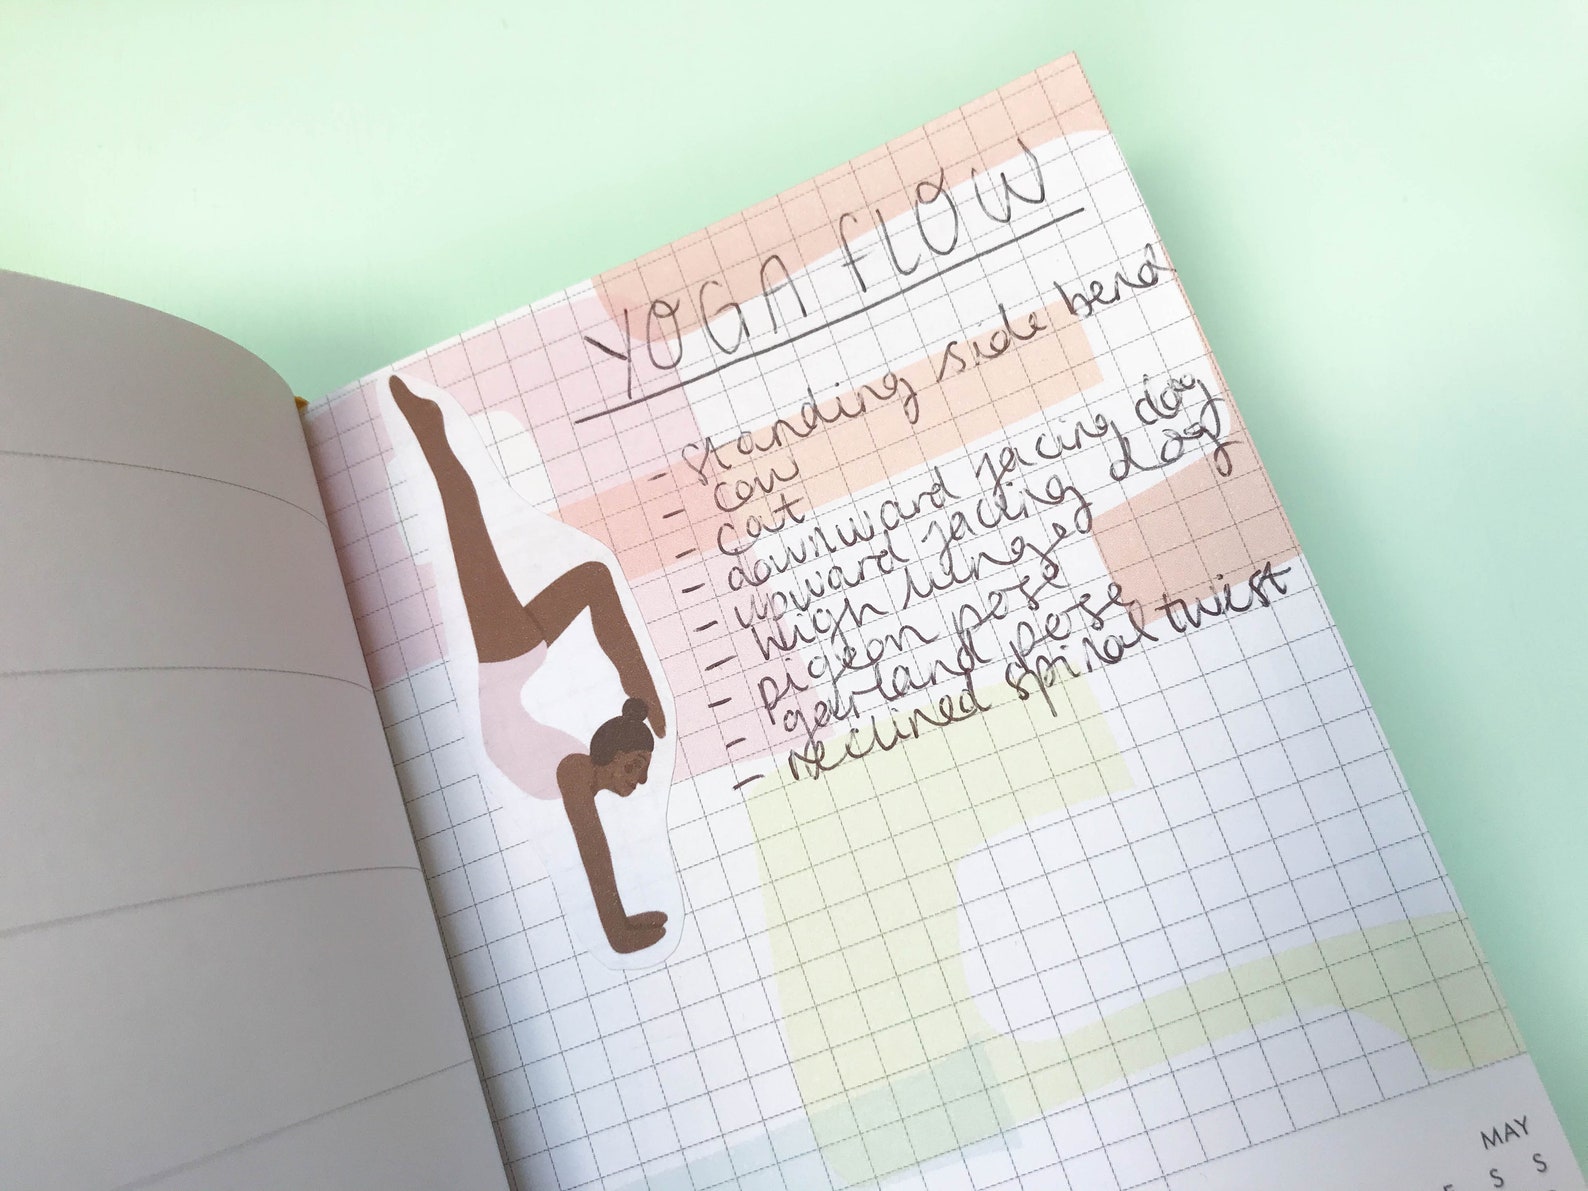 YOGA FLOW
- standing side bend
- cow
- cat
- downward facing dog
- upward facing dog
- high lunge
- pigeon pose
- garland pose
- reclined spinal twist
MAY
S S